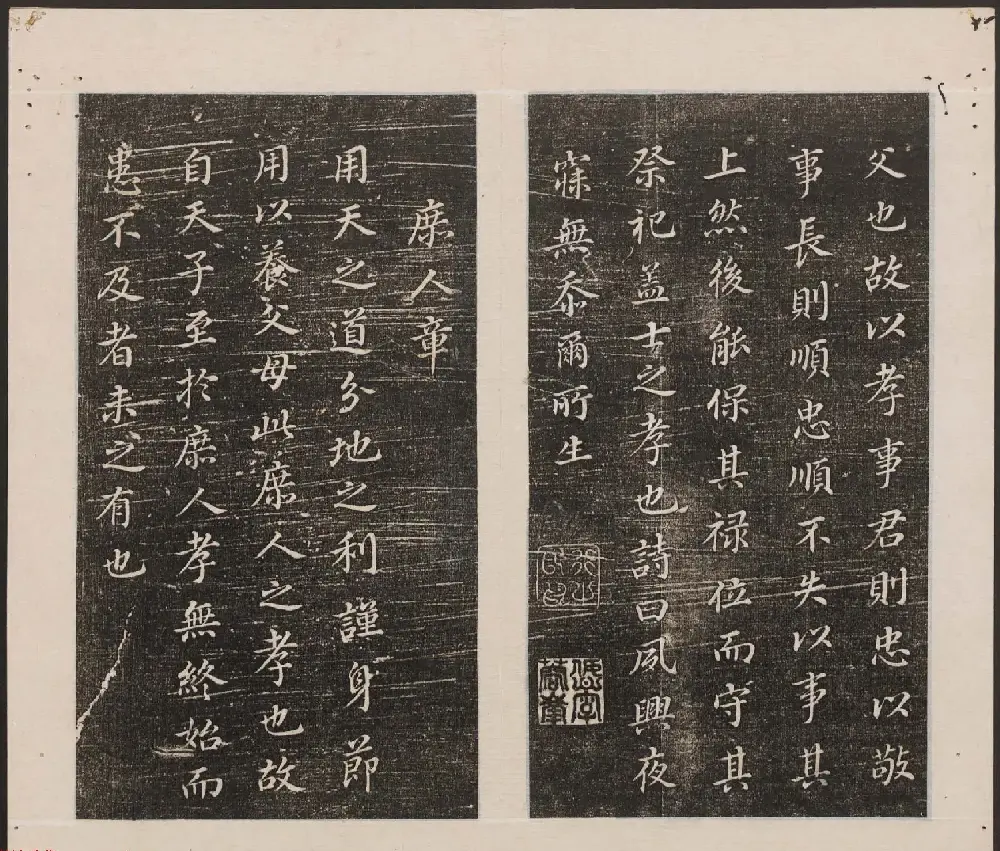 父也故以孝事君則忠以敬
事長則順忠順不失以事其
上然後能保其禄位而守其
祭祀盖士之孝也詩曰夙興夜
寐無忝爾所生
庶人章
用天之道分地之利謹身節
用以養父母此庶人之孝也故
自天子至於庶人孝無終始而
患不及者未之有也